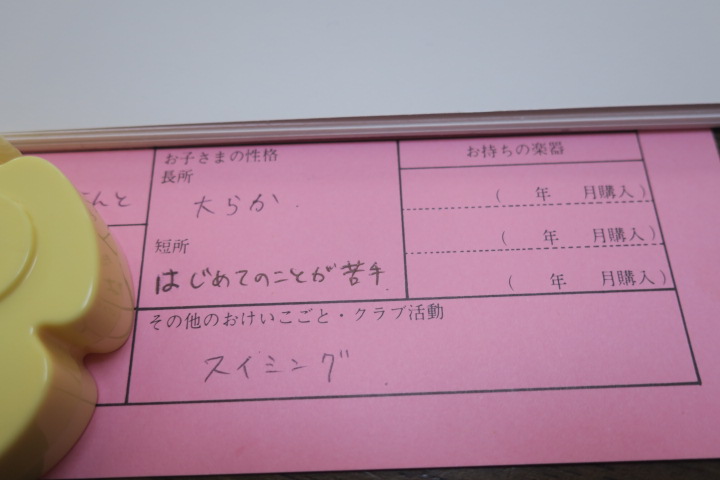 んと
お子さまの性格
長所
大らか
短所
はじめてのことが苦手
お持ちの楽器
( 年 月購入)
( 年 月購入)
( 年 月購入)
その他のおけいこごと・クラブ活動
スイミング